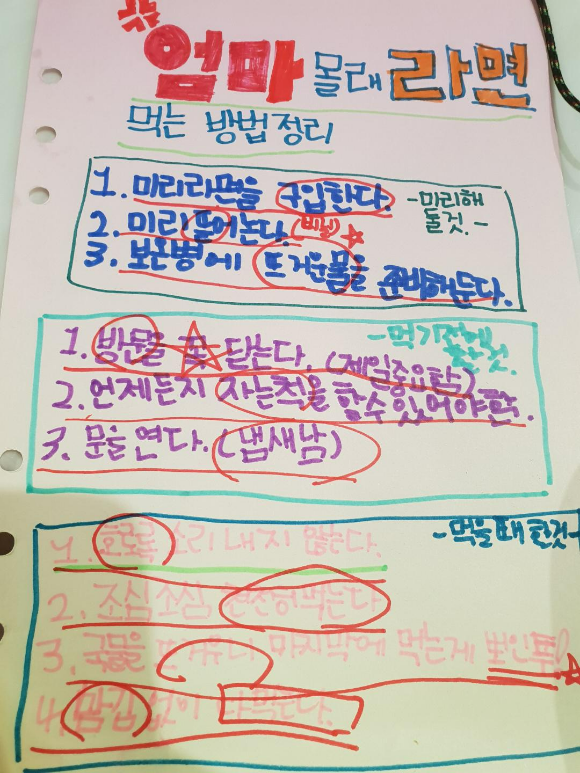 엄마 몰래 라면
먹는 방법 정리
1. 미리라면을 구입한다.
- 미리해
둘것. -
2. 미리 뜯어논다.
3. 보온병에 뜨거운물을 준비해둔다.
- 먹기전에
할것.
1. 방문을 꼭 닫는다. (제일중요함)
2. 언제든지 자는척을 할수있어야한다.
3. 문을 연다. (냄새남)
- 먹을때 할것 -
1. 호로록 소리 내지 않는다.
2. 조심조심 천천히먹는다
3. 국물을 뜨거우니 마지막에 먹는게 뽀인투!
4. 남김없이 다먹는다.